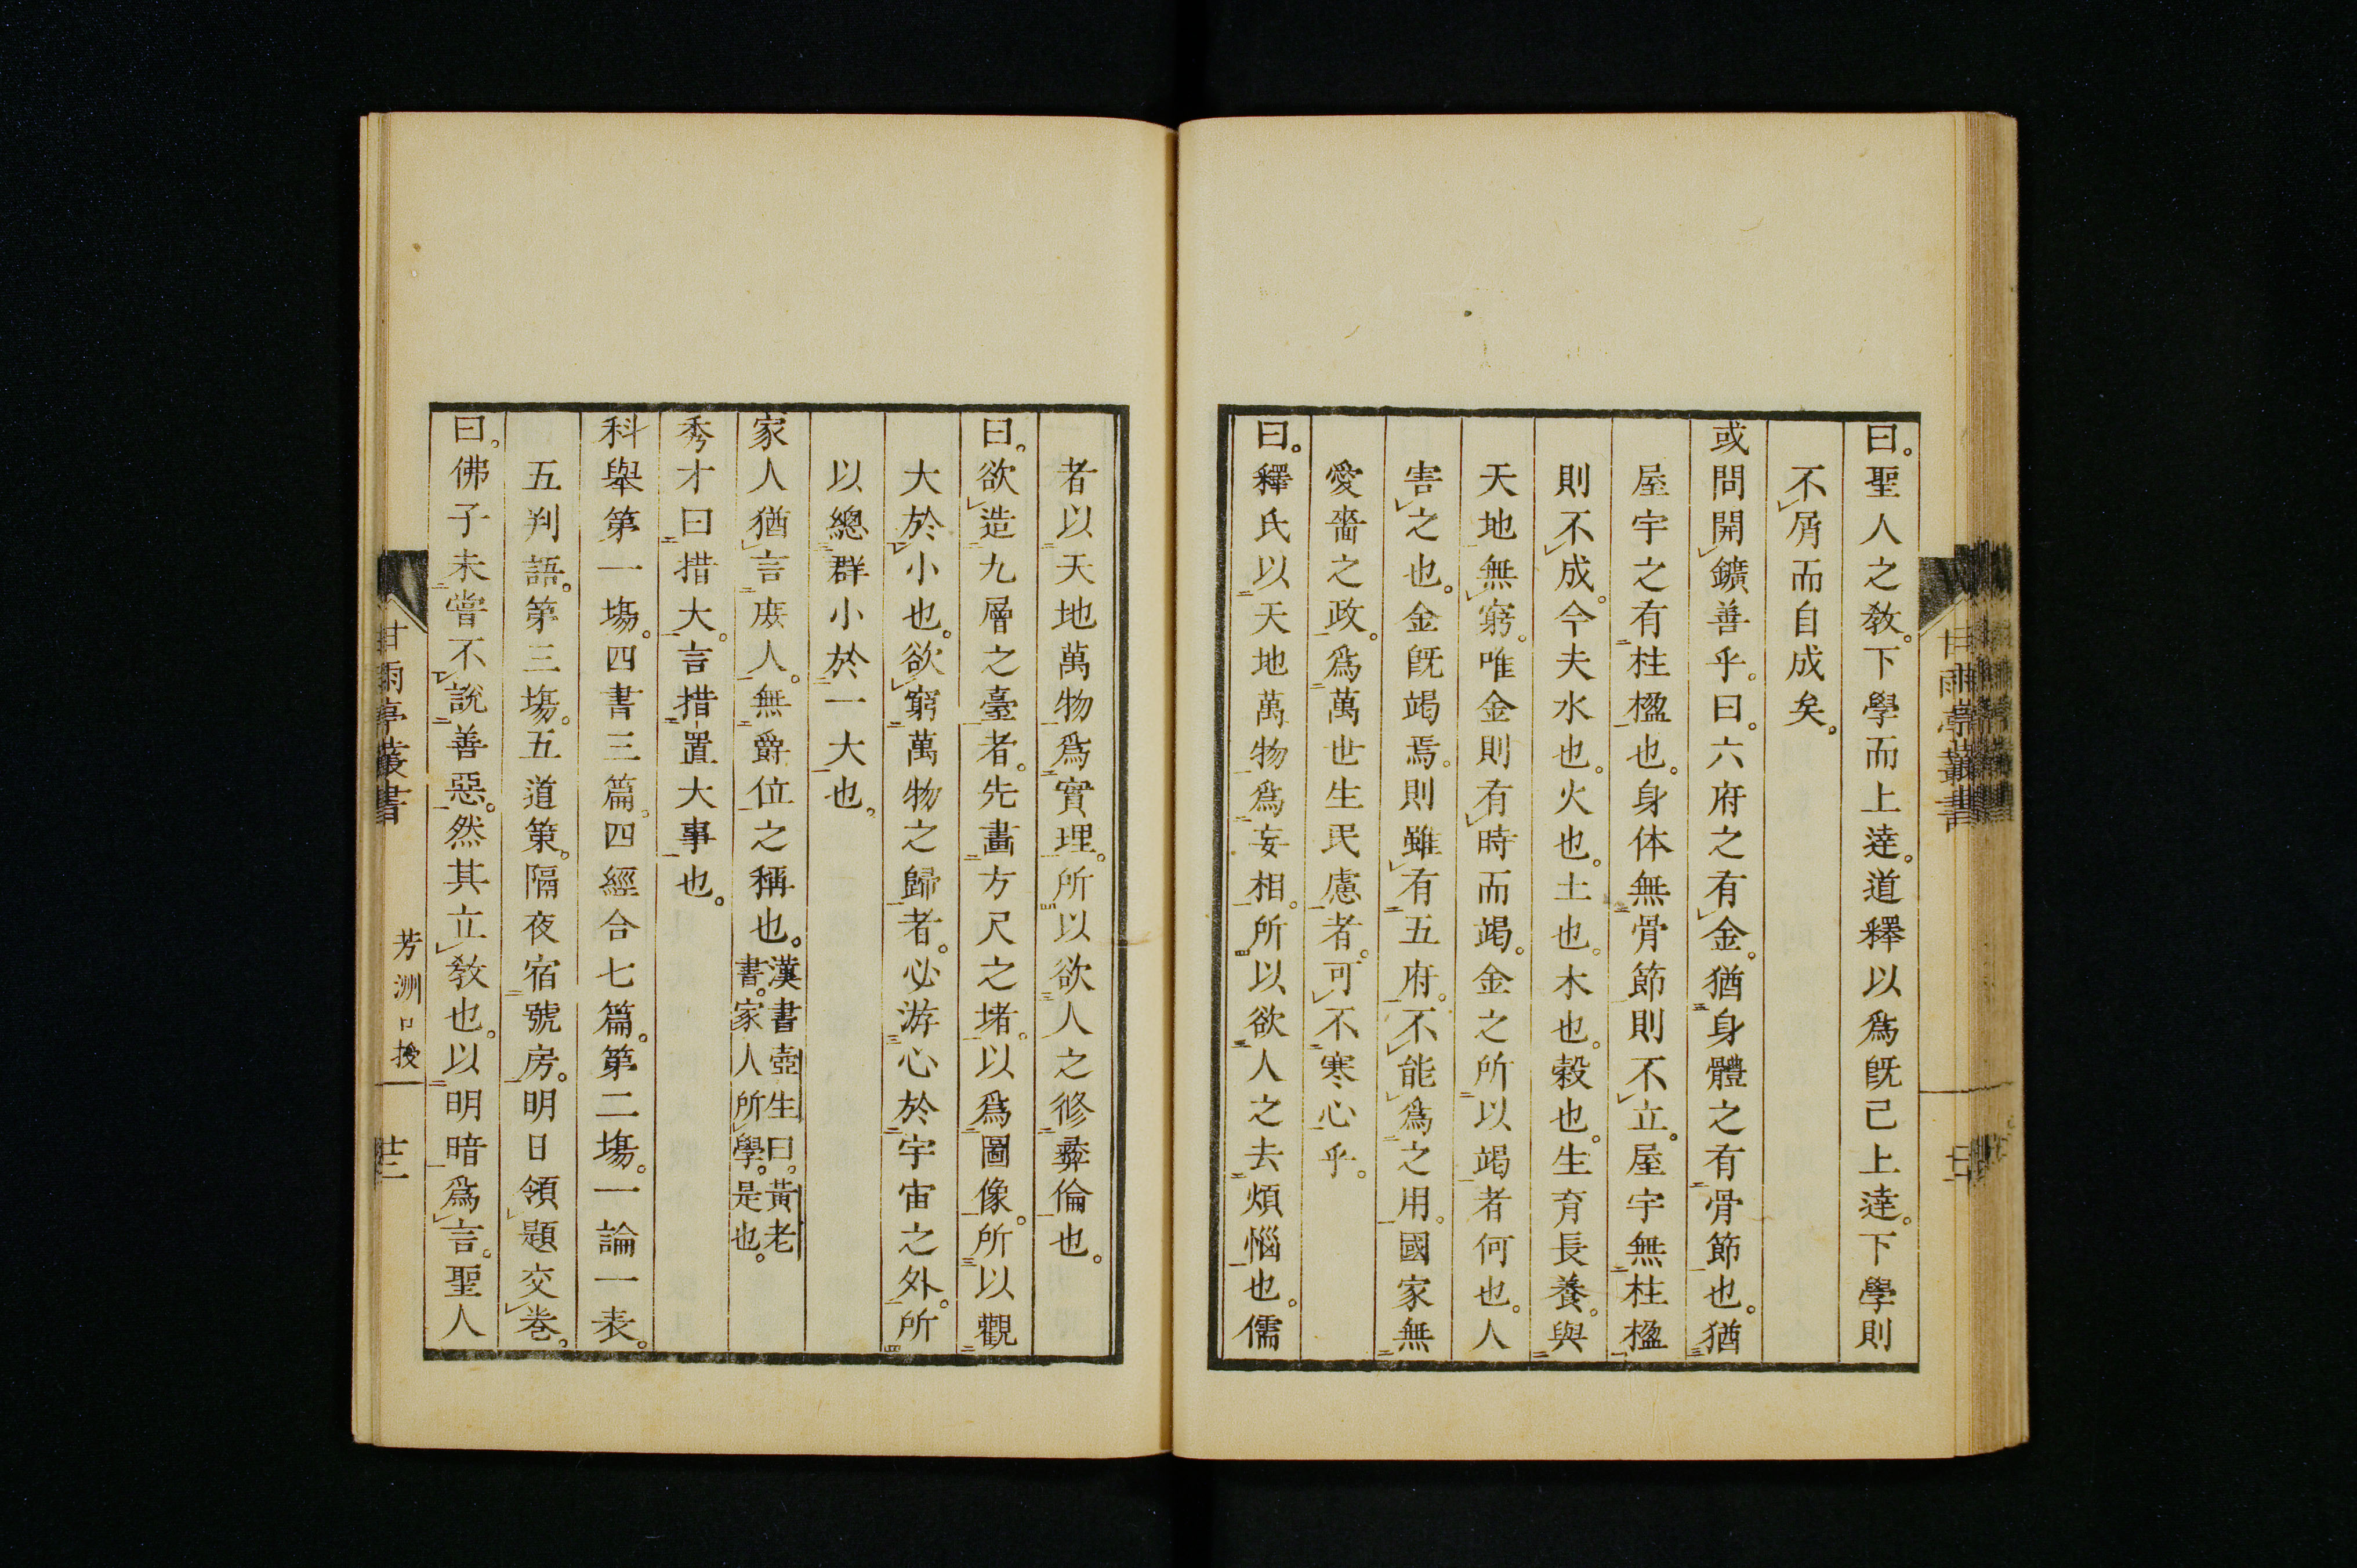 曰。聖人之教。下學而上達。道釋以爲既已上達。下學則
不屑而自成矣。
或問開鑛善乎。曰。六府之有金。猶身體之有骨節也。猶
屋宇之有柱楹也。身体無骨節則不立。屋宇無柱楹
則不成。今夫水也。火也。土也。木也。穀也。生育長養。與
天地無窮。唯金則有時而竭。金之所以竭者何也。人
害之也。金既竭焉。則雖有五府。不能爲之用。國家無
愛嗇之政。爲萬世生民慮者。可不寒心乎。
曰。釋氏以天地萬物爲妄相。所以欲人之去煩惱也。儒
者以天地萬物爲實理。所以欲人之修彝倫也。
曰。欲造九層之臺者。先畫方尺之堵。以爲圖像。所以觀
大於小也。欲窮萬物之歸者。必游心於宇宙之外。所
以總群小於一大也。
家人猶言庶人。無爵位之稱也。漢書壺生曰。黃老
書。家人所學。是也。
秀才曰措大。言措置大事也。
科舉第一場。四書三篇。四經合七篇。第二場。一論一表。
五判語。第三場。五道策。隔夜宿號房。明日領題交卷。
曰。佛子未嘗不說善惡。然其立教也。以明暗爲言。聖人
甘雨亭叢書
芳洲口授
廿二